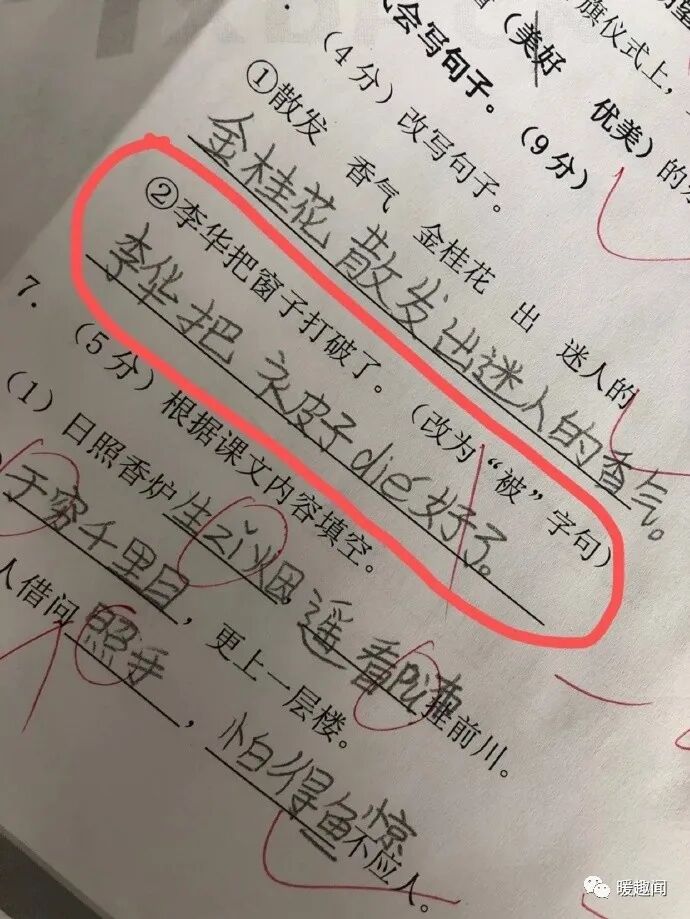 旗仪式上，
（美好 优美）的
气会写句子。（9分）
（4分）改写句子。
①散发 香气 金桂花 出 迷人的
金桂花散发出迷人的香气。
②李华把窗子打破了。（改为“被”字句）
李华把衣皮子die好了。
7.（5分）根据课文内容填空。
（1）日照香炉生zǐ烟，遥看pù布挂前川。
于穷千里目，更上一层楼。
人借问照手，怕得鱼惊不应人。
暖趣闻